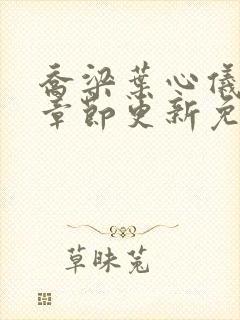 乔梁叶心仪
章节更新免
草昧兔